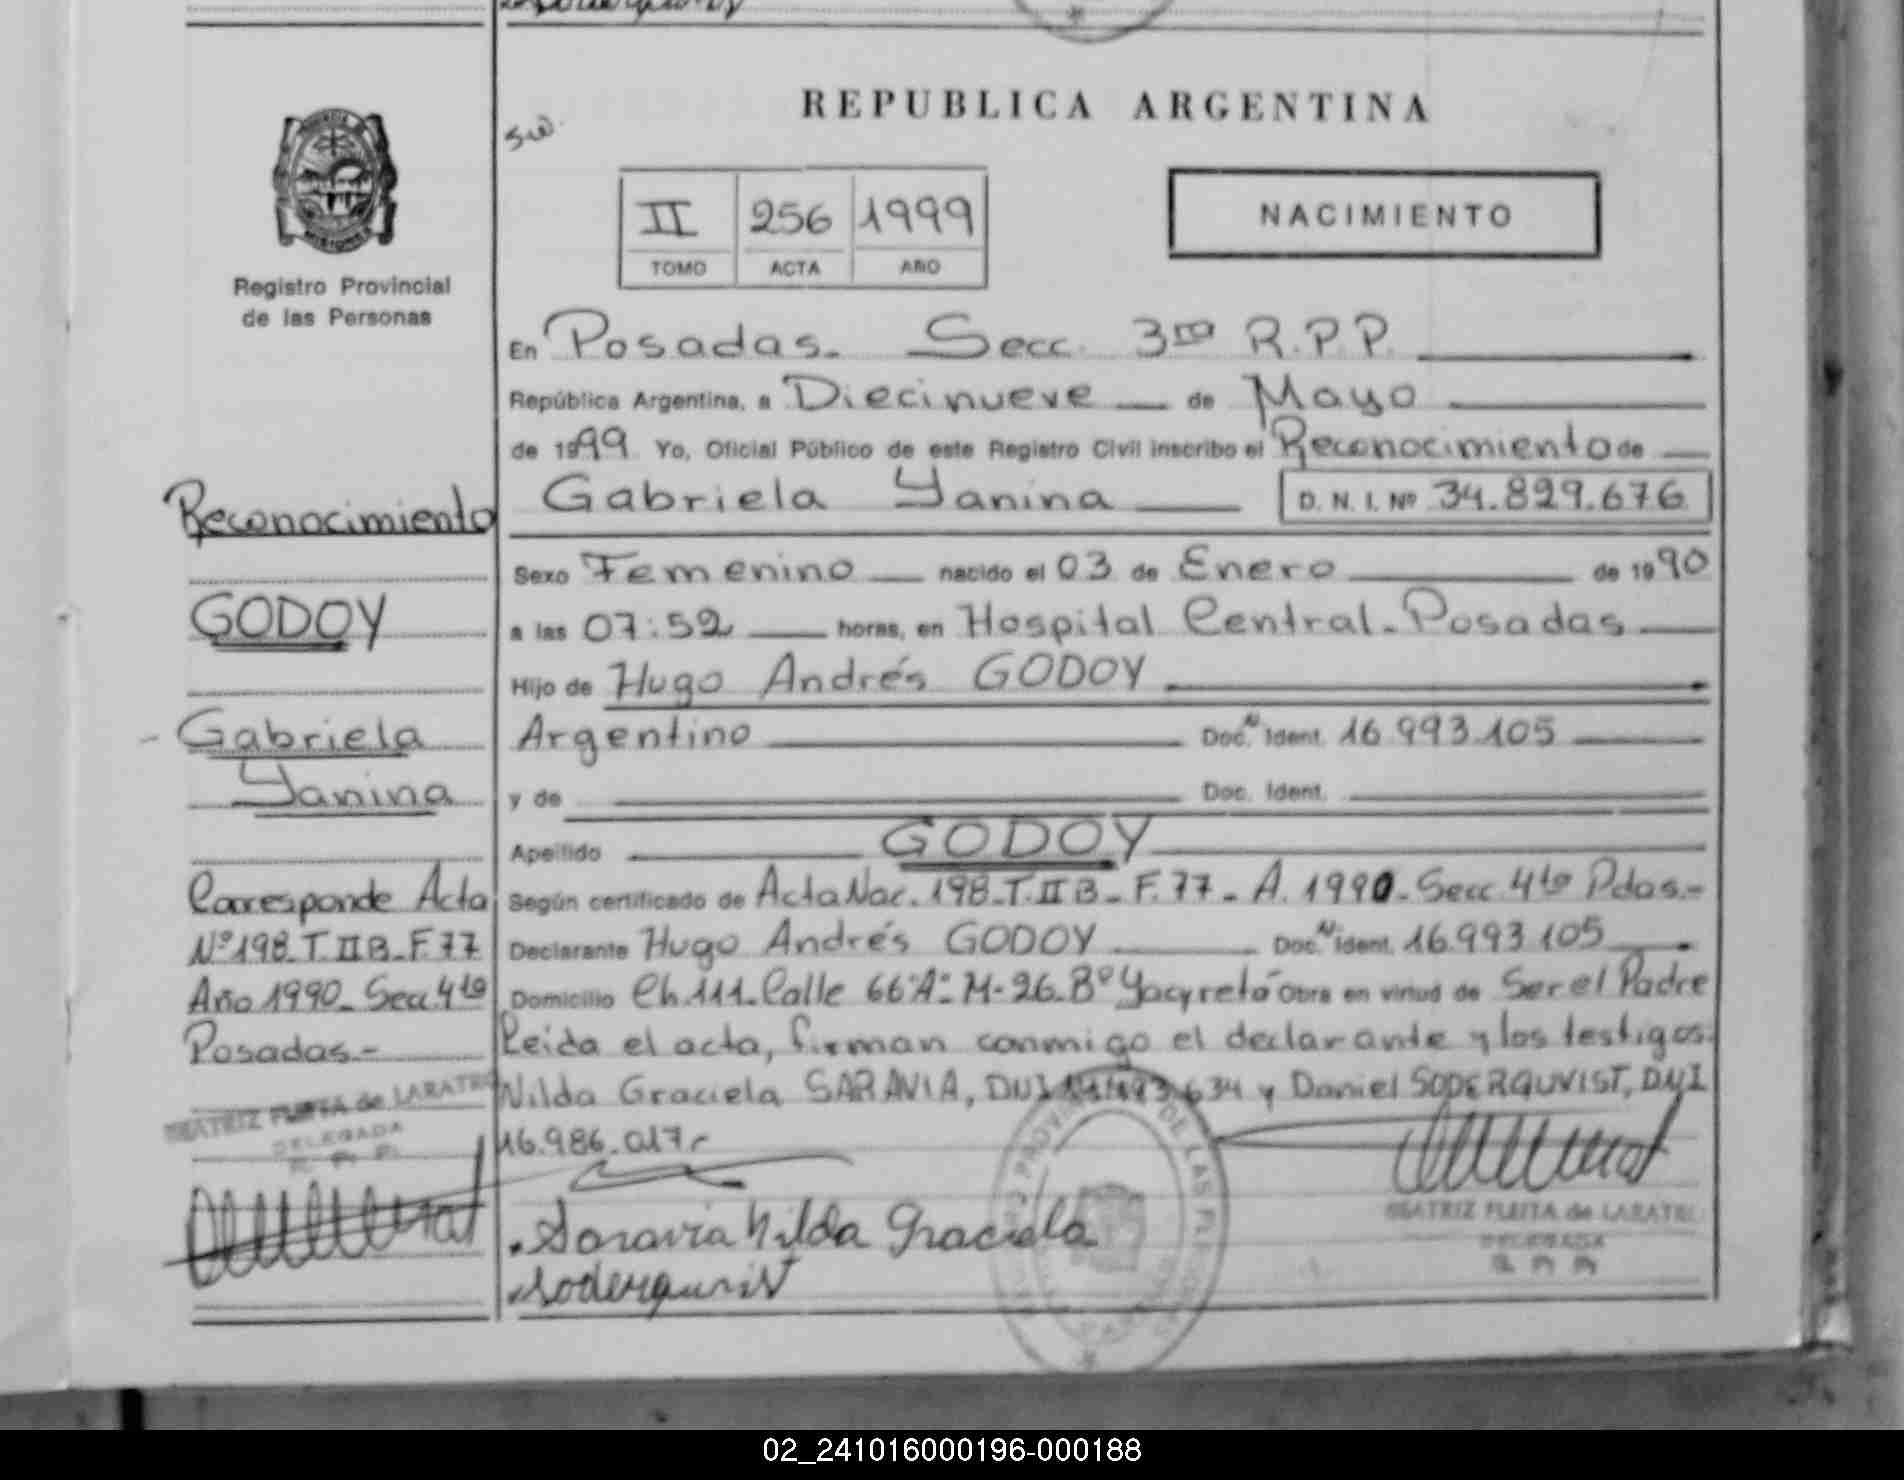 REPUBLICA ARGENTINA
II 256 1999
TOMO ACTA AÑO
NACIMIENTO
Registro Provincial
de las Personas
En Posadas. Secc. 3ra R.P.P.
República Argentina, a Diecinueve de Mayo
de 1999 Yo, Oficial Público de este Registro Civil inscribo el Reconocimiento de
Gabriela Yanina D. N. I. Nº 34.829.676
Sexo Femenino nacido el 03 de Enero de 1990
a las 07:52 horas, en Hospital Central. Posadas
Hijo de Hugo Andrés GODOY
Argentino Doc. N Ident. 16.993.105
y de Doc. Ident.
Apellido GODOY
Según certificado de Acta Nac. 198-T.IIB-F.77-A.1990-Secc. 4ta Pdas.-
Declarante Hugo Andrés GODOY Doc. N Ident. 16.993.105
Domicilio Ch.111-Calle 66"A"-M-26-Bº Yacyretá Obra en virtud de Ser el Padre
Leida el acta, firman conmigo el declarante y los testigos:
Nilda Graciela SARAVIA, DNI y Daniel SODERQUVIST, DNI
16.986.017.-
Saravia Nilda Graciela
Soderquvist
BEATRIZ FLEITA de LARATRO
DELEGADA
R. P. P.
Reconocimiento
GODOY
Gabriela
Yanina
Corresponde Acta
Nº 198-T.IIB-F.77
Año 1990-Secc. 4ta
Posadas.-
BEATRIZ FLEITA de LARATRO
DELEGADA
R. P. P.
02_241016000196-000188